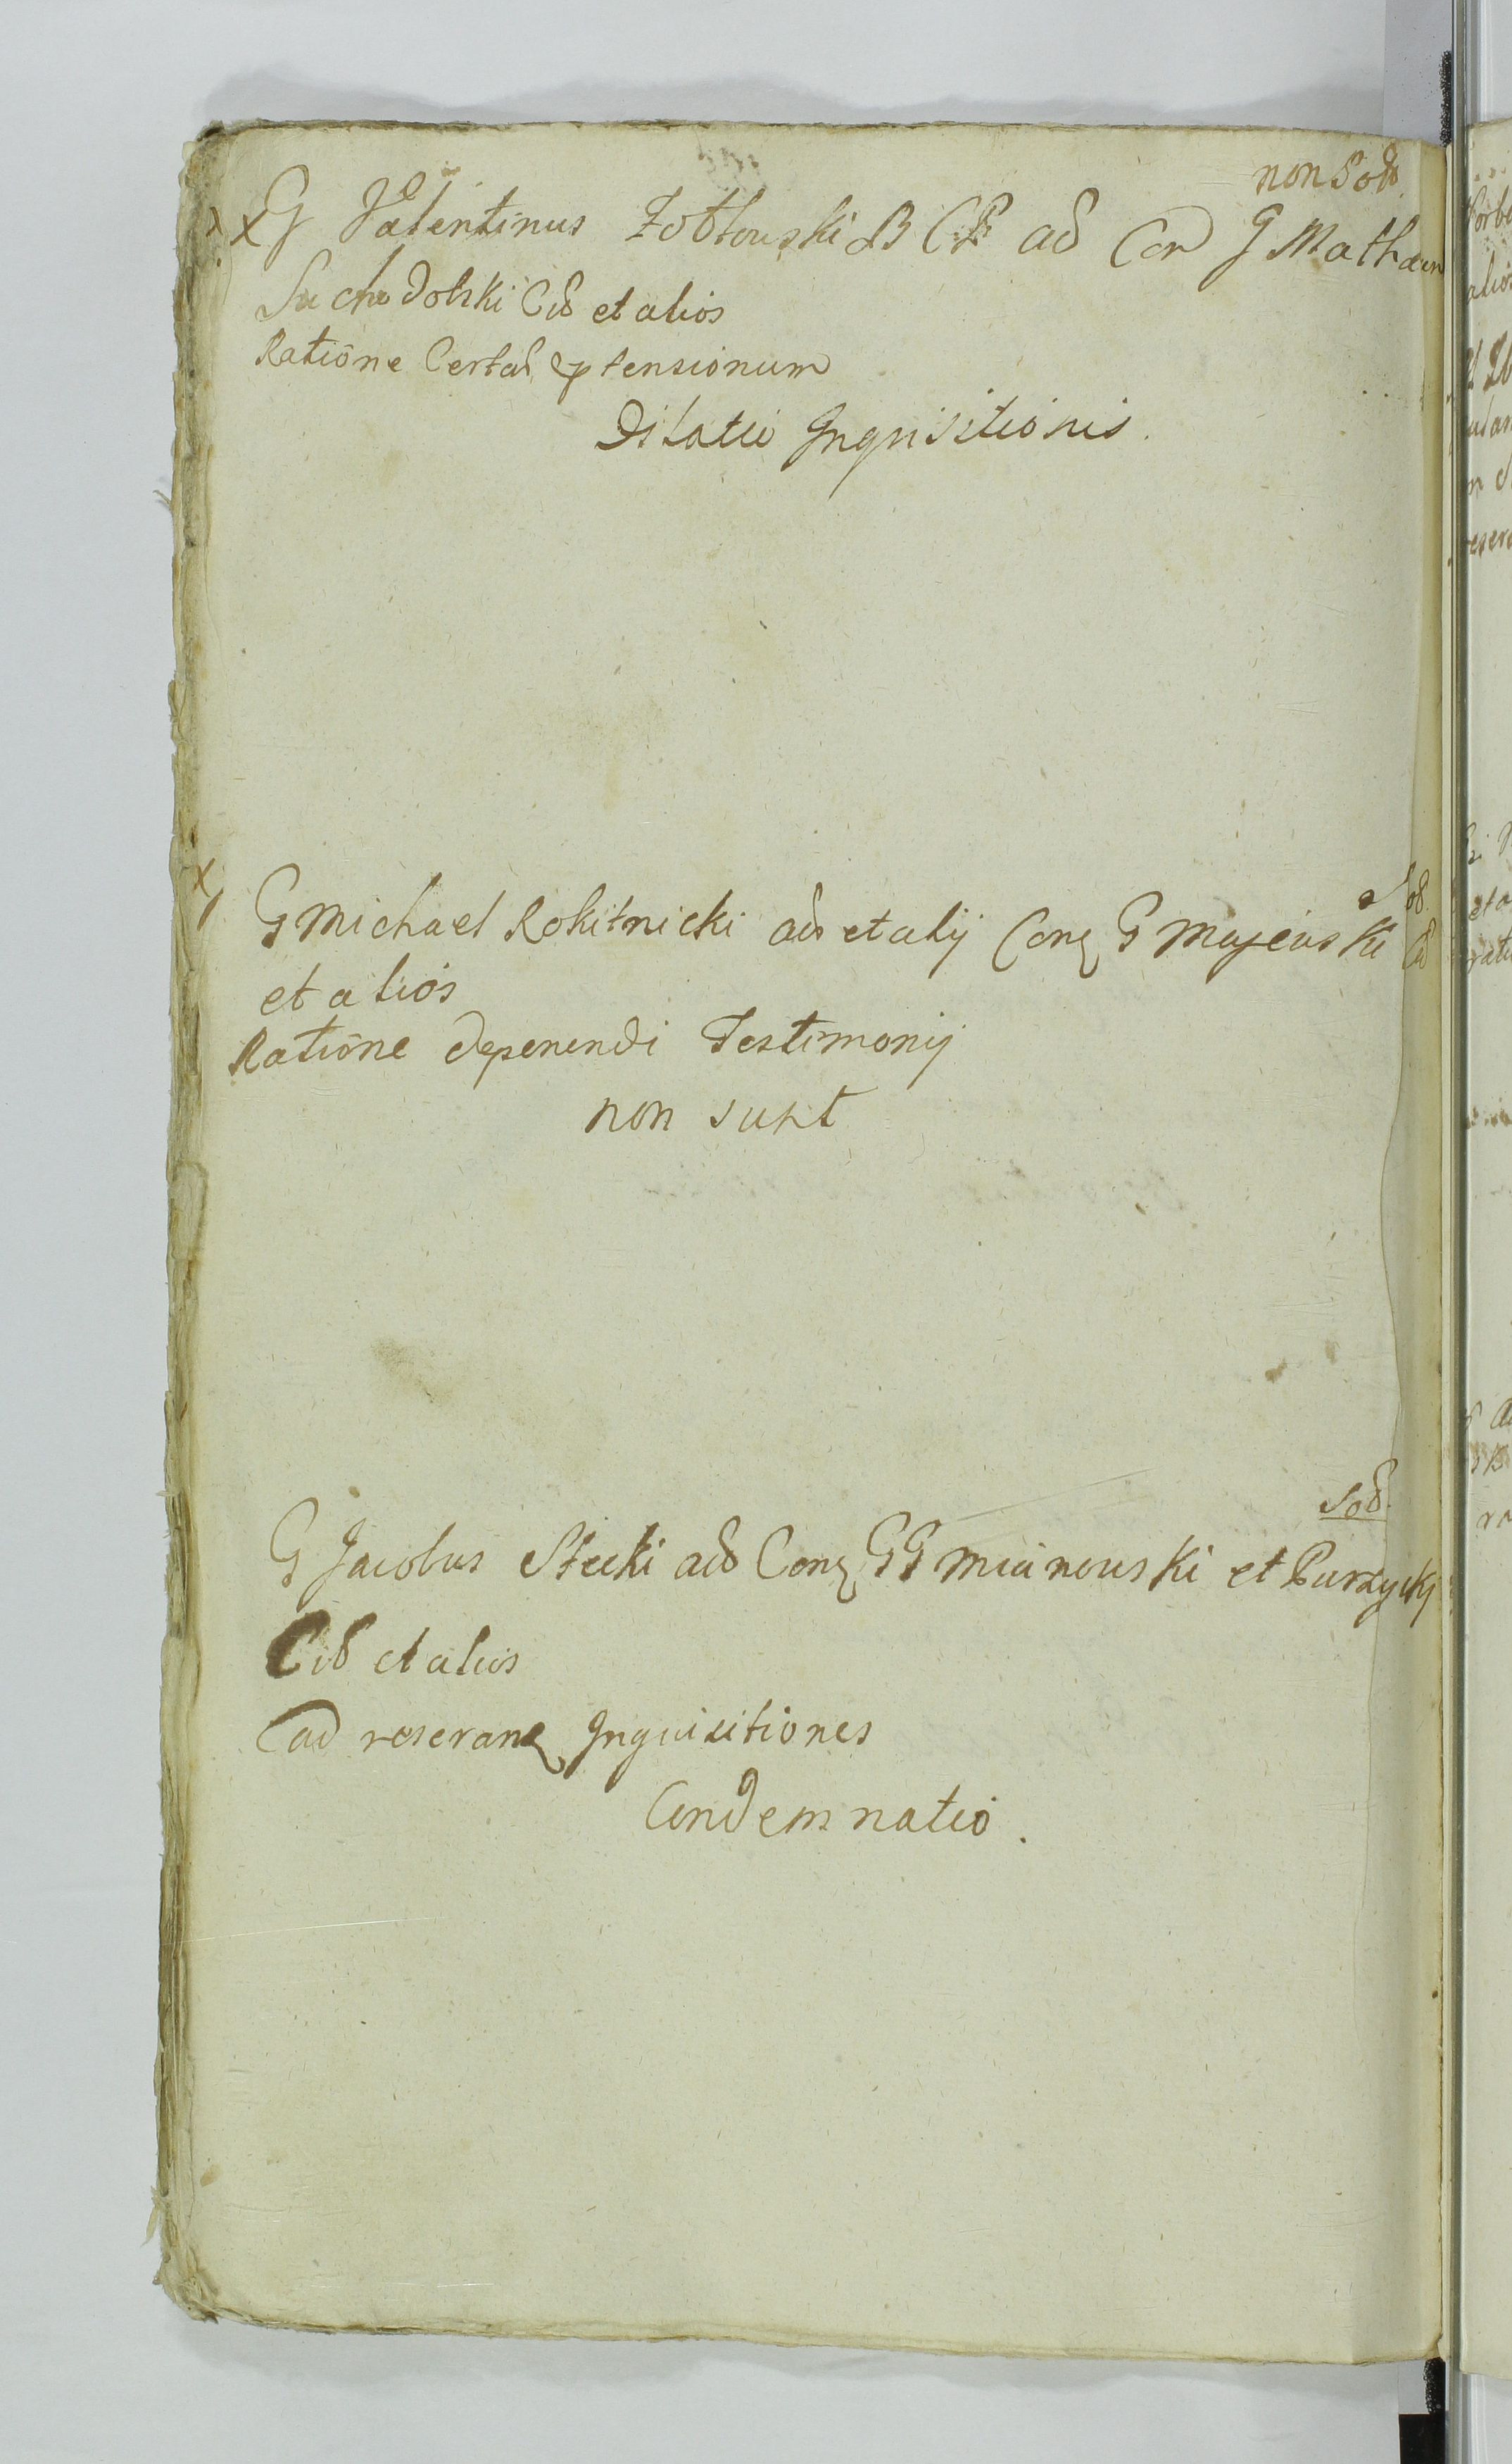 non Sod
G Valentinus Zotłowski B C P ad Con G Mathaeum
Suchodolski Cit et alios
Ratione Certas ptensionum
Dilatio Inquisitionis.
Sod.
G Michael Rokitnicki ad et alij Conq G Majewski Cit
et alios
Ratione deponendi Testimonij
non sunt
Sod.
G Jacobus Stecki ad Conq GG Mianowski et Purzycki
Cit et alios
ad reserand Inquisitiones
Condemnatio.